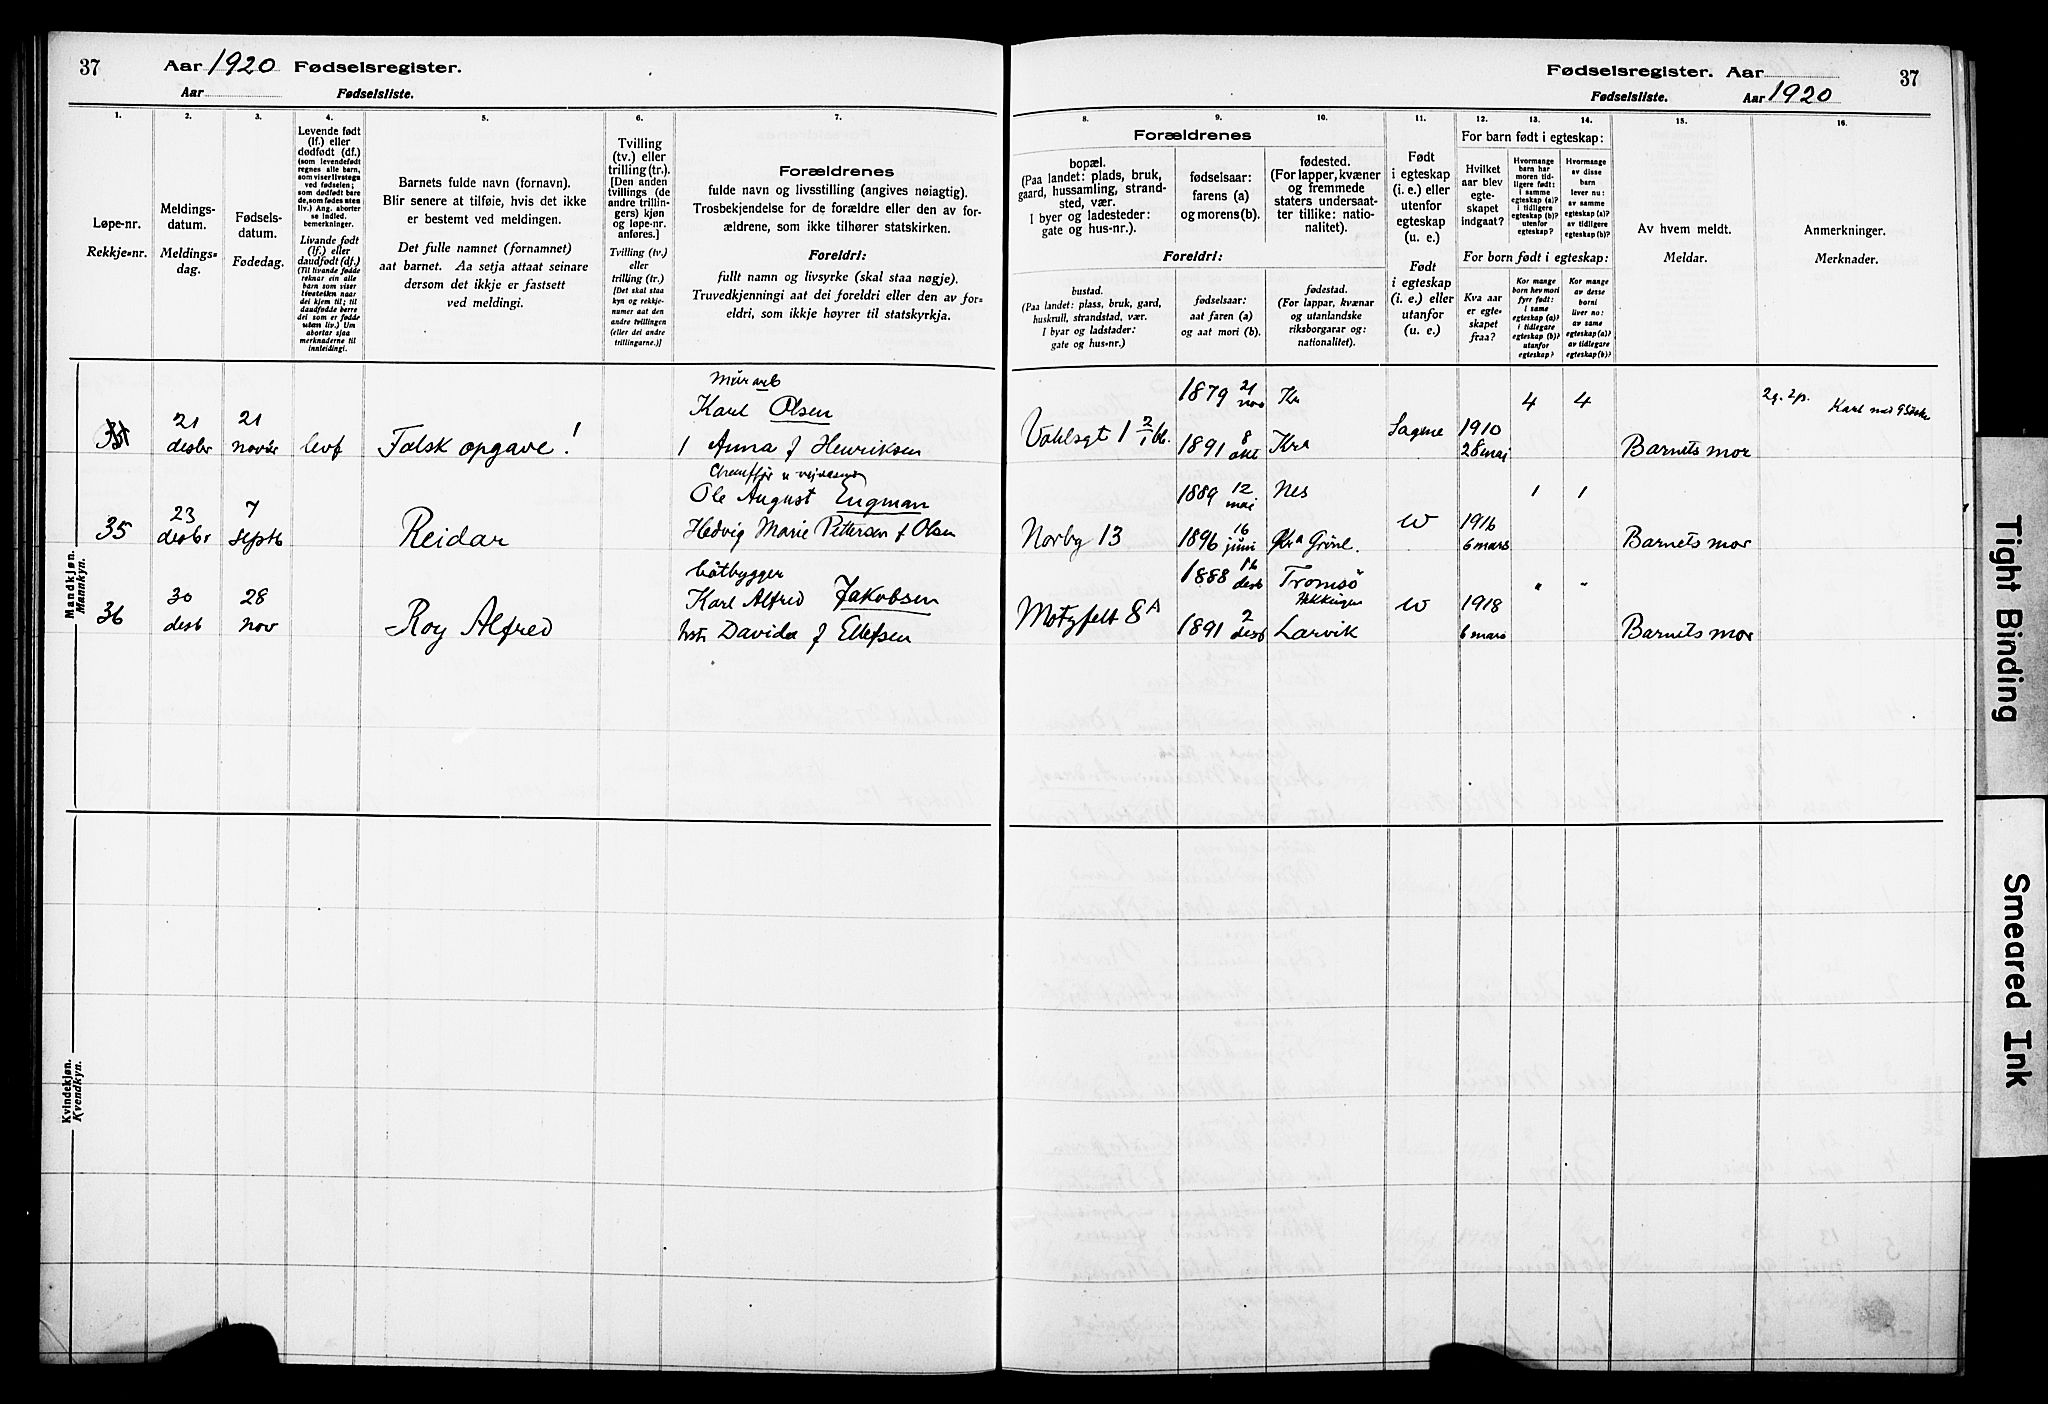 37 Aar 1920 Fødselsregister.
Aar Fødselsliste.
1. 2. 3. 4. 5. 6. 7.
Løpe-nr.
Rekkje=nr.
Meldings-
datum.
Meldings=
dag.
Fødsels-
datum.
Fødedag.
Levende født
(lf.) eller
dødfødt (df.)
(som levendefødt
regnes alle barn,
som viser livstegn
ved fødselen;
som dødfødt bare
de, som fødes uten
liv.) Ang. aborter
se indled.
bemerkninger.
Livande født
(lf.) eller
daudfødt (df.)
(Til livande fødde
reknar ein alle
barn som viser
livsteikn naar
dei kjem til; til
daudfødde berre
dei som er fødde
utan liv.) Um
abortar sjaa
merknaderne til
innleidingi.
Barnets fulde navn (fornavn).
Blir senere at tilføie, hvis det ikke
er bestemt ved meldingen.
Det fulle namnet (fornamnet)
aat barnet. Aa setja attaat seinare
dersom det ikkje er fastsett
ved meldingi.
Tvilling
(tv.) eller
trilling (tr.).
[Den anden
tvillings (de
andre trillin-
gers) kjøn
og løpe-nr.
anføres.]
Tvilling (tv.)
eller
trilling (tr.)
[Det skal staa
kyn og rekkje-
numer aat den
andre tvillingen
(eller dei andre
trillingarne.)]
Forældrenes
fulde navn og livsstilling (angives nøiagtig).
Trosbekjendelse for de forældre eller den av for-
ældrene, som ikke tilhører statskirken.
Foreldri:
fullt namn og livsyrke (skal staa nøgje).
Truvedkjenningi aat dei foreldri eller den av for=
eldri, som ikkje høyrer til statskyrkja.
Mandkjøn.
Mannkyn.
murarb
21 21 Karl Olsen
desbr novbr levf Falsk opgave! Anna f Henriksen
Ole August Engman
23 7
35 desbr septb Reidar Hedvig Marie Pettersen f Olsen
båtbygger
30 28 Karl Alfred Jakobsen
36 desb nov Roy Alfred hstr Davida f Ellefsen
Kvindekjøn.
Kvendkyn.
Fødselsregister. Aar 37
Fødselsliste. Aar 1920
8. 9. 10. 11. 12. 13. 14. 15. 16.
Forældrenes
bopæl.
(Paa landet: plads, bruk,
gaard, hussamling, strand-
sted, vær.
I byer og ladesteder:
gate og hus-nr.).
fødselsaar:
farens (a)
og morens (b).
fødested.
(For lapper, kvæner
og fremmede
staters undersaat-
ter tillike: natio-
nalitet).
Foreldri:
bustad.
(Paa landet: plass, bruk, gard,
huskrull, strandstad, vær.
I byar og ladstader:
gate og hus=nr.)
fødselsaar:
aat faren (a)
og aat mori (b).
fødestad.
(For lappar, kvænar
og utanlandske
riksborgarar og:
nationalitet).
Født
i egteskap
(i. e.) eller
utenfor
egteskap
(u. e.)
Født
i egteskap
(i. e.) eller
utanfor
(u. e.)
For barn født i egteskap:
Hvilket
aar blev
egte-
skapet
indgaat?
Hvormange
barn har
moren tid-
ligere født:
i samme
egteskap (a)?
i tidligere
egteskap (b)?
utenfor
egteskap?
Hvormange
av disse
barn
lever nu:
av samme
egteskap (a)?
av tidligere
egteskap (b)?
For born født i egteskap:
Kva aar
er egte-
skapet
fraa?
Kor mange
born hev mori
fyrr født:
i same
egteskap (a)?
i tidlegare
egteskap (b)?
utanfor
egteskap?
Kor mange
av desse
born
liver no:
av same
egteskap (a)?
av tidlegare
egteskap (b)?
Av hvem meldt.
Meldar.
Anmerkninger.
Merknader.
1879 21 nov Kr 4 4 2g. 2p. Karl med 9 Søsk
Vahlsgt 1 1891 8 okt Kra Sagene 1910 28 mai Barnets mor
1889 12 mai Nes 1 1
Norby 13 1896 16 juni Kra Grønl. W 1916 6 mars Barnets mor
1888 16 desb Tromsø " "
Motzfelt 8A 1891 2 desb Larvik W 1918 6 mars Barnets mor
Tight Binding
Smeared Ink